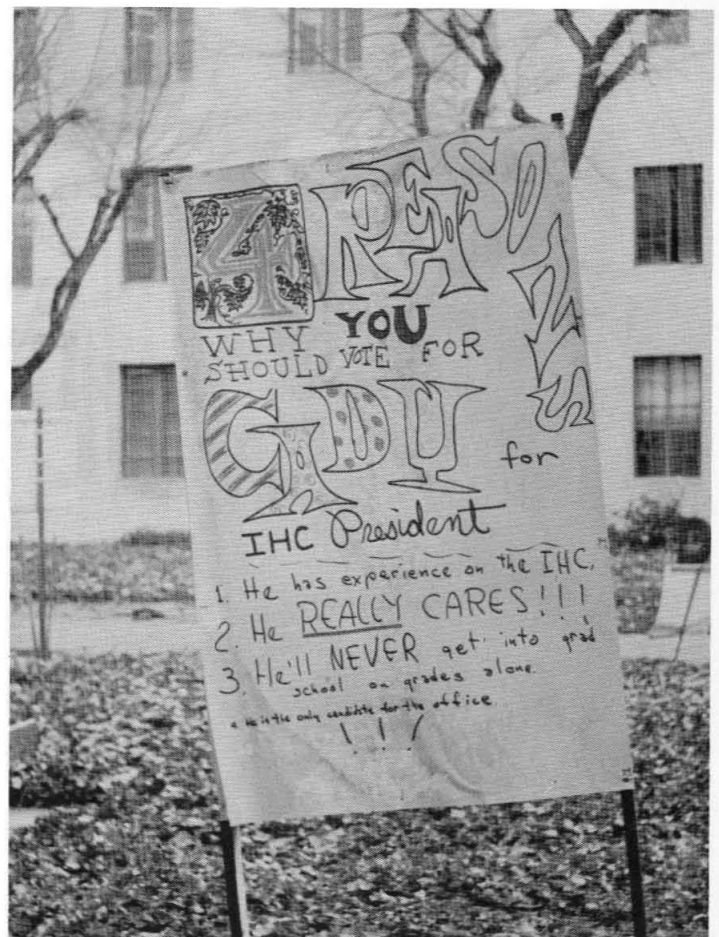 4 REASONS
WHY YOU
SHOULD VOTE FOR
GARY for
IHC President
1. He has experience on the IHC.
2. He REALLY CARES!!!
3. He'll NEVER get into grad
school on grades alone.
4. He is the only candidate for the office.
!!!